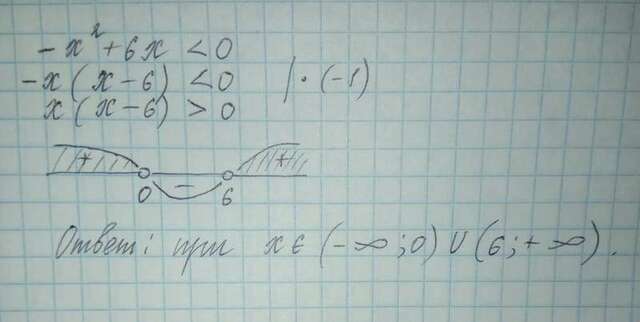 -x² + 6x < 0
-x(x-6) < 0 | · (-1)
x(x-6) > 0
+ - +
0 6
Ответ: при x ∈ (-∞; 0) ∪ (6; +∞).